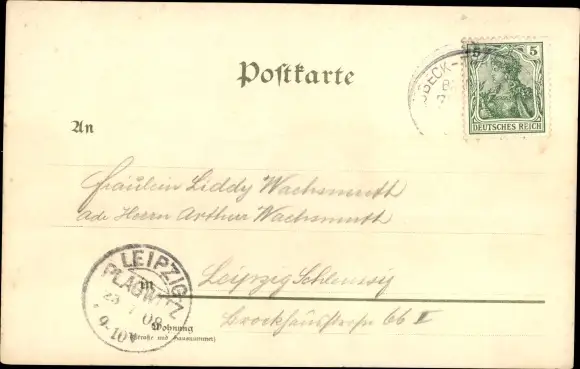 Postkarte
5
DEUTSCHES REICH
BECK-
An
Fräulein Liddy Wachsmuth
ade Herrn Arthur Wachsmuth
LEIPZIG
PLAGWITZ
08
9-10
in Leipzig Schleussig
Brockhausstrasse 66 II
Wohnung
(Straße und Hausnummer)